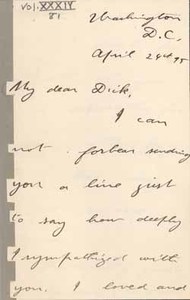 Vol. XXXIV
81
Washington
D.C.
April 24th 95
My dear Dick,
I can
not forbear sending
you a line just
to say how deeply
I sympathized with
you. I loved and